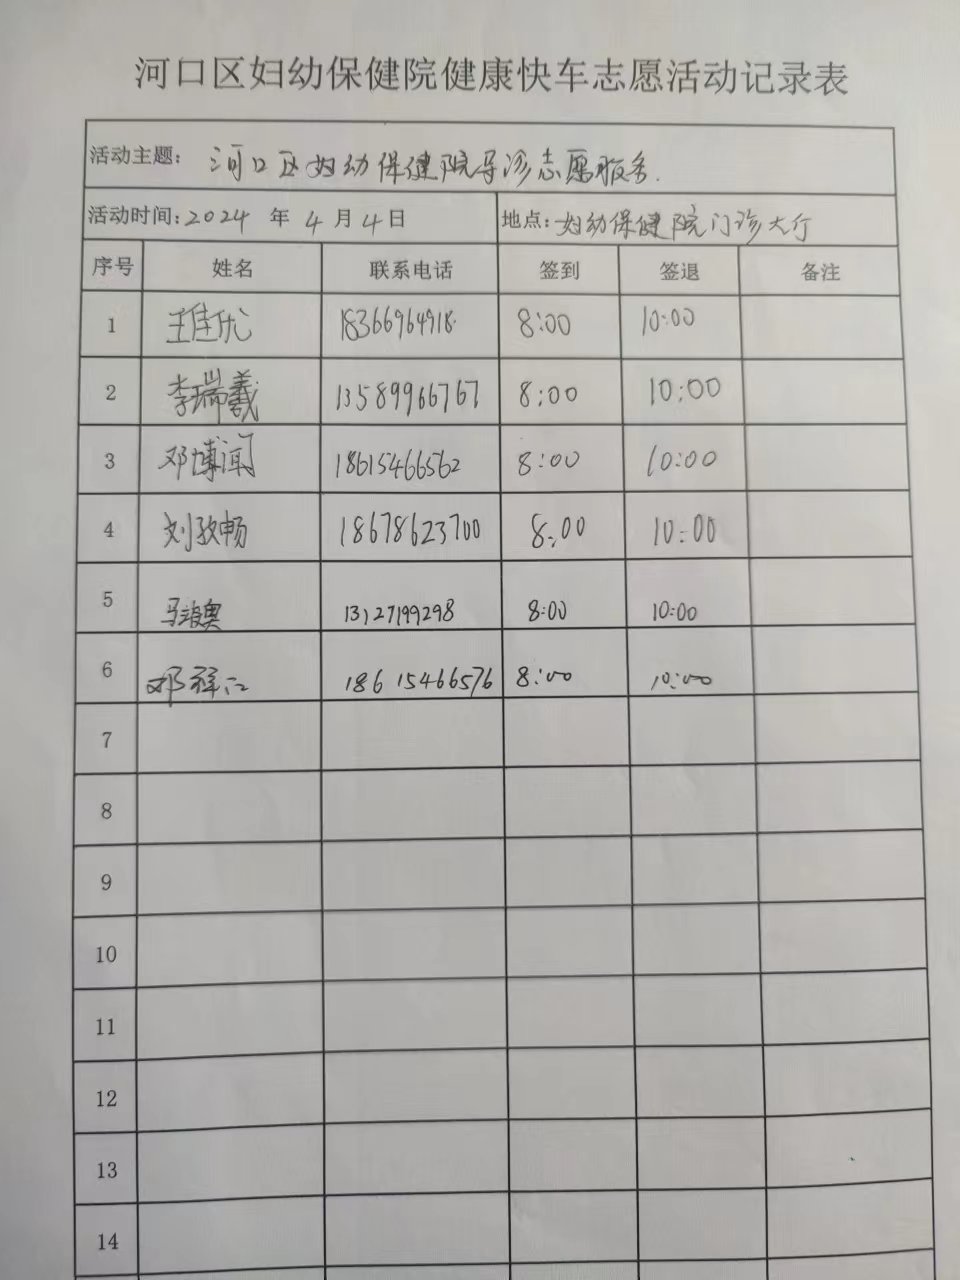 河口区妇幼保健院健康快车志愿活动记录表
活动主题： 河口区妇幼保健院导诊志愿服务.
活动时间：2024 年 4 月 4 日 地点：妇幼保健院门诊大厅
序号 姓名 联系电话 签到 签退 备注
1 王佳优 18366964918 8:00 10:00
2 李瑞羲 13589966767 8:00 10:00
3 邓博闻 18615466562 8:00 10:00
4 刘致畅 18678623700 8:00 10:00
5 马 13127199298 8:00 10:00
6 邓 18615466576 8:00 10:00
7
8
9
10
11
12
13
14